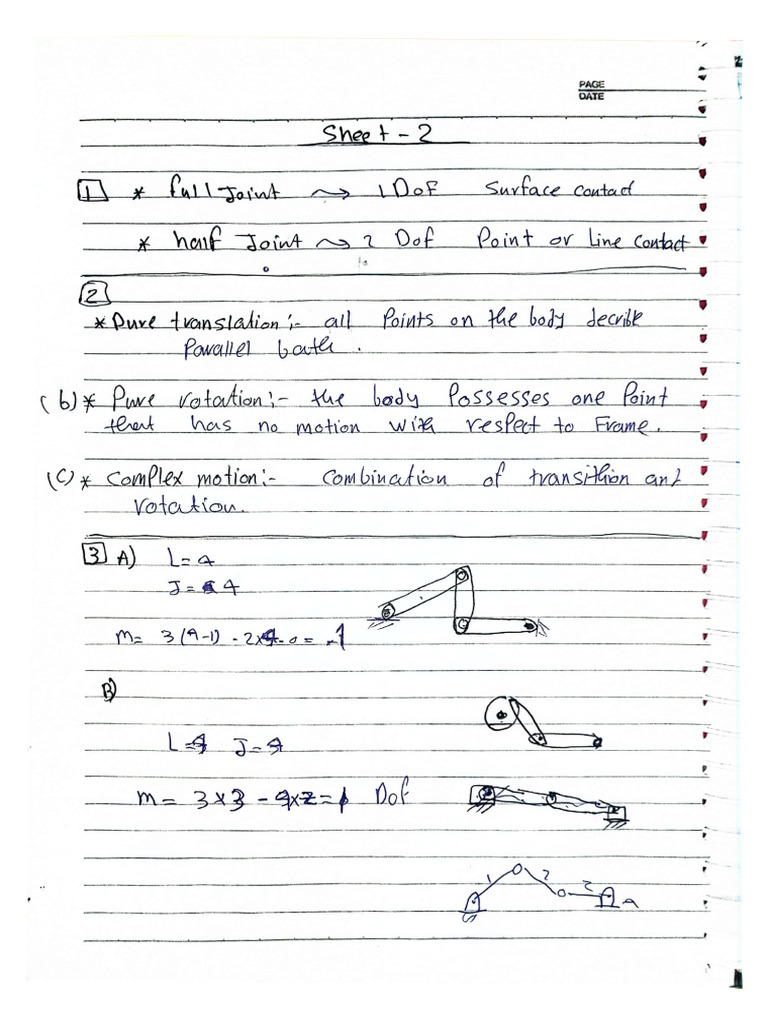 PAGE
DATE
Sheet - 2
1 * full Joint ⇝ 1 DoF Surface contact
* half Joint ⇝ 2 Dof Point or Line contact
2
* Pure translation:- all Points on the body decrible
Parallel bath.
(b) * Pure rotation:- the body Possesses one Point
that has no motion with respect to Frame.
(C) * Complex motion:- Combination of transithion and
rotation.
3 A) L = 4
J = 4
m = 3(4-1) - 2×4 - 0 = 1
B)
L = 4 J = 4
m = 3×3 - 4×2 = 1 Dof
1 2 2